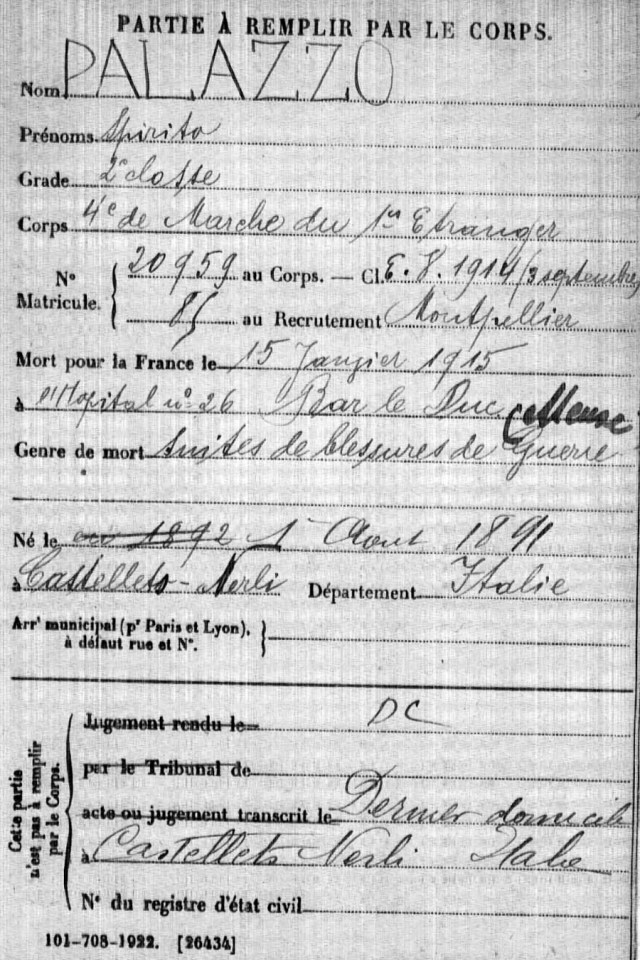 PARTIE À REMPLIR PAR LE CORPS.
Nom PALAZZO
Prénoms Spirito
Grade 2e classe
Corps 4e de Marche du 1er Etranger
N° Matricule. 20959 au Corps. — Cl. E.8.1914 (3 septembre)
85 au Recrutement Montpellier
Mort pour la France le 15 Janvier 1915
à l'Hopital n° 26 Bar le Duc (Meuse
Genre de mort Suites de blessures de Guerre
Né le en 1892 1er Aout 1891
à Castelleto-Merli Département Italie
Arrt municipal (pr Paris et Lyon),
à défaut rue et N°.
Cette partie
n'est pas à remplir
par le Corps.
Jugement rendu le DC
par le Tribunal de
acte ou jugement transcrit le Dernier domicile
à Castelleto Merli Italie
N° du registre d'état civil
101-708-1922. [26434]